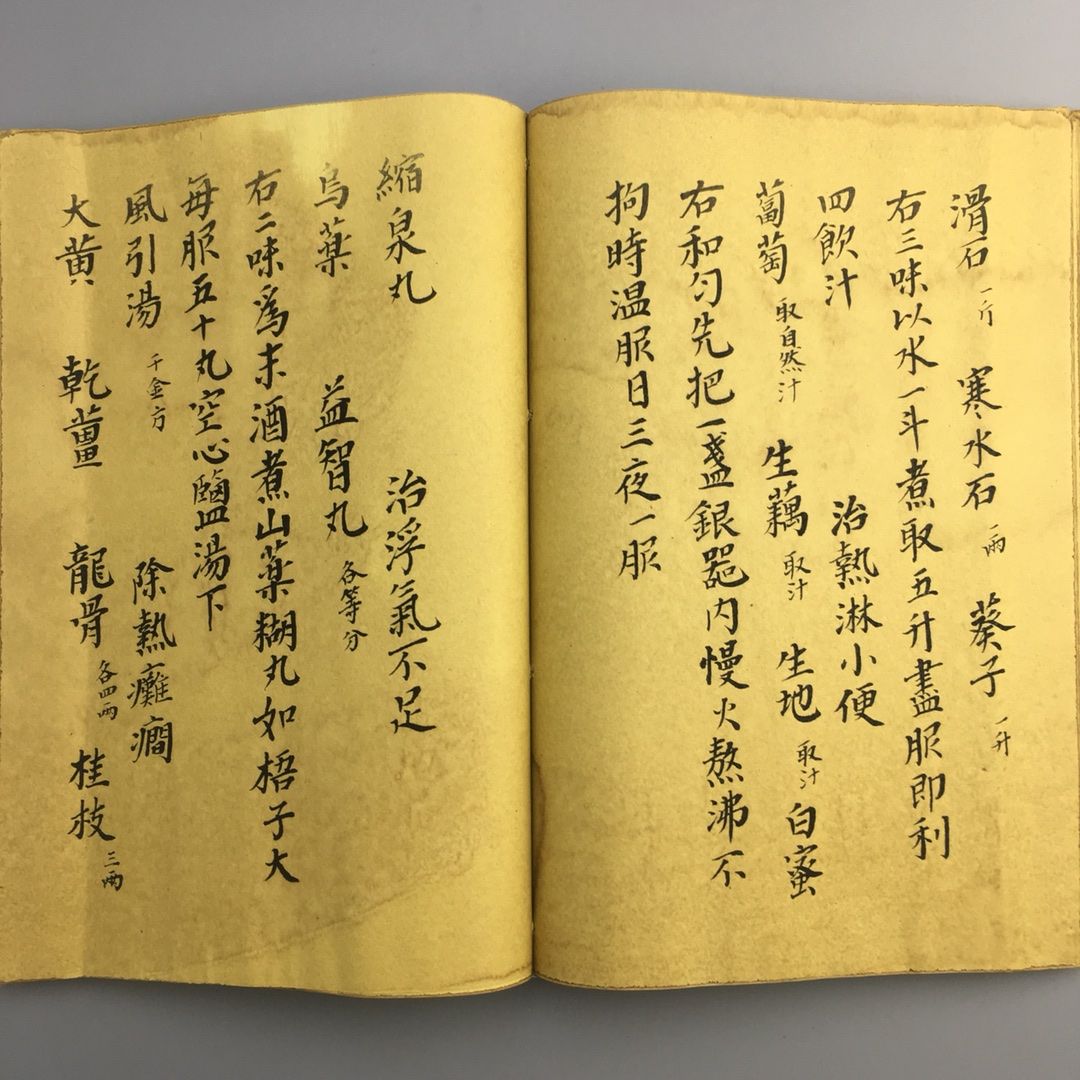 滑石 一斤 寒水石 一兩 葵子 一升
右三味以水一斗煮取五升盡服即利
四飲汁 治熱淋小便
蔔萄 取自然汁 生藕 取汁 生地 取汁 白蜜
右和勻先把一盞銀器内慢火熬沸不
拘時温服日三夜一服
縮泉丸 治浮氣不足
烏藥 益智丸 各等分
右二味為末酒煮山藥糊丸如梧子大
每服五十丸空心鹽湯下
風引湯 千金方 除熱癱癇
大黄 乾薑 龍骨 各四兩 桂枝 三兩